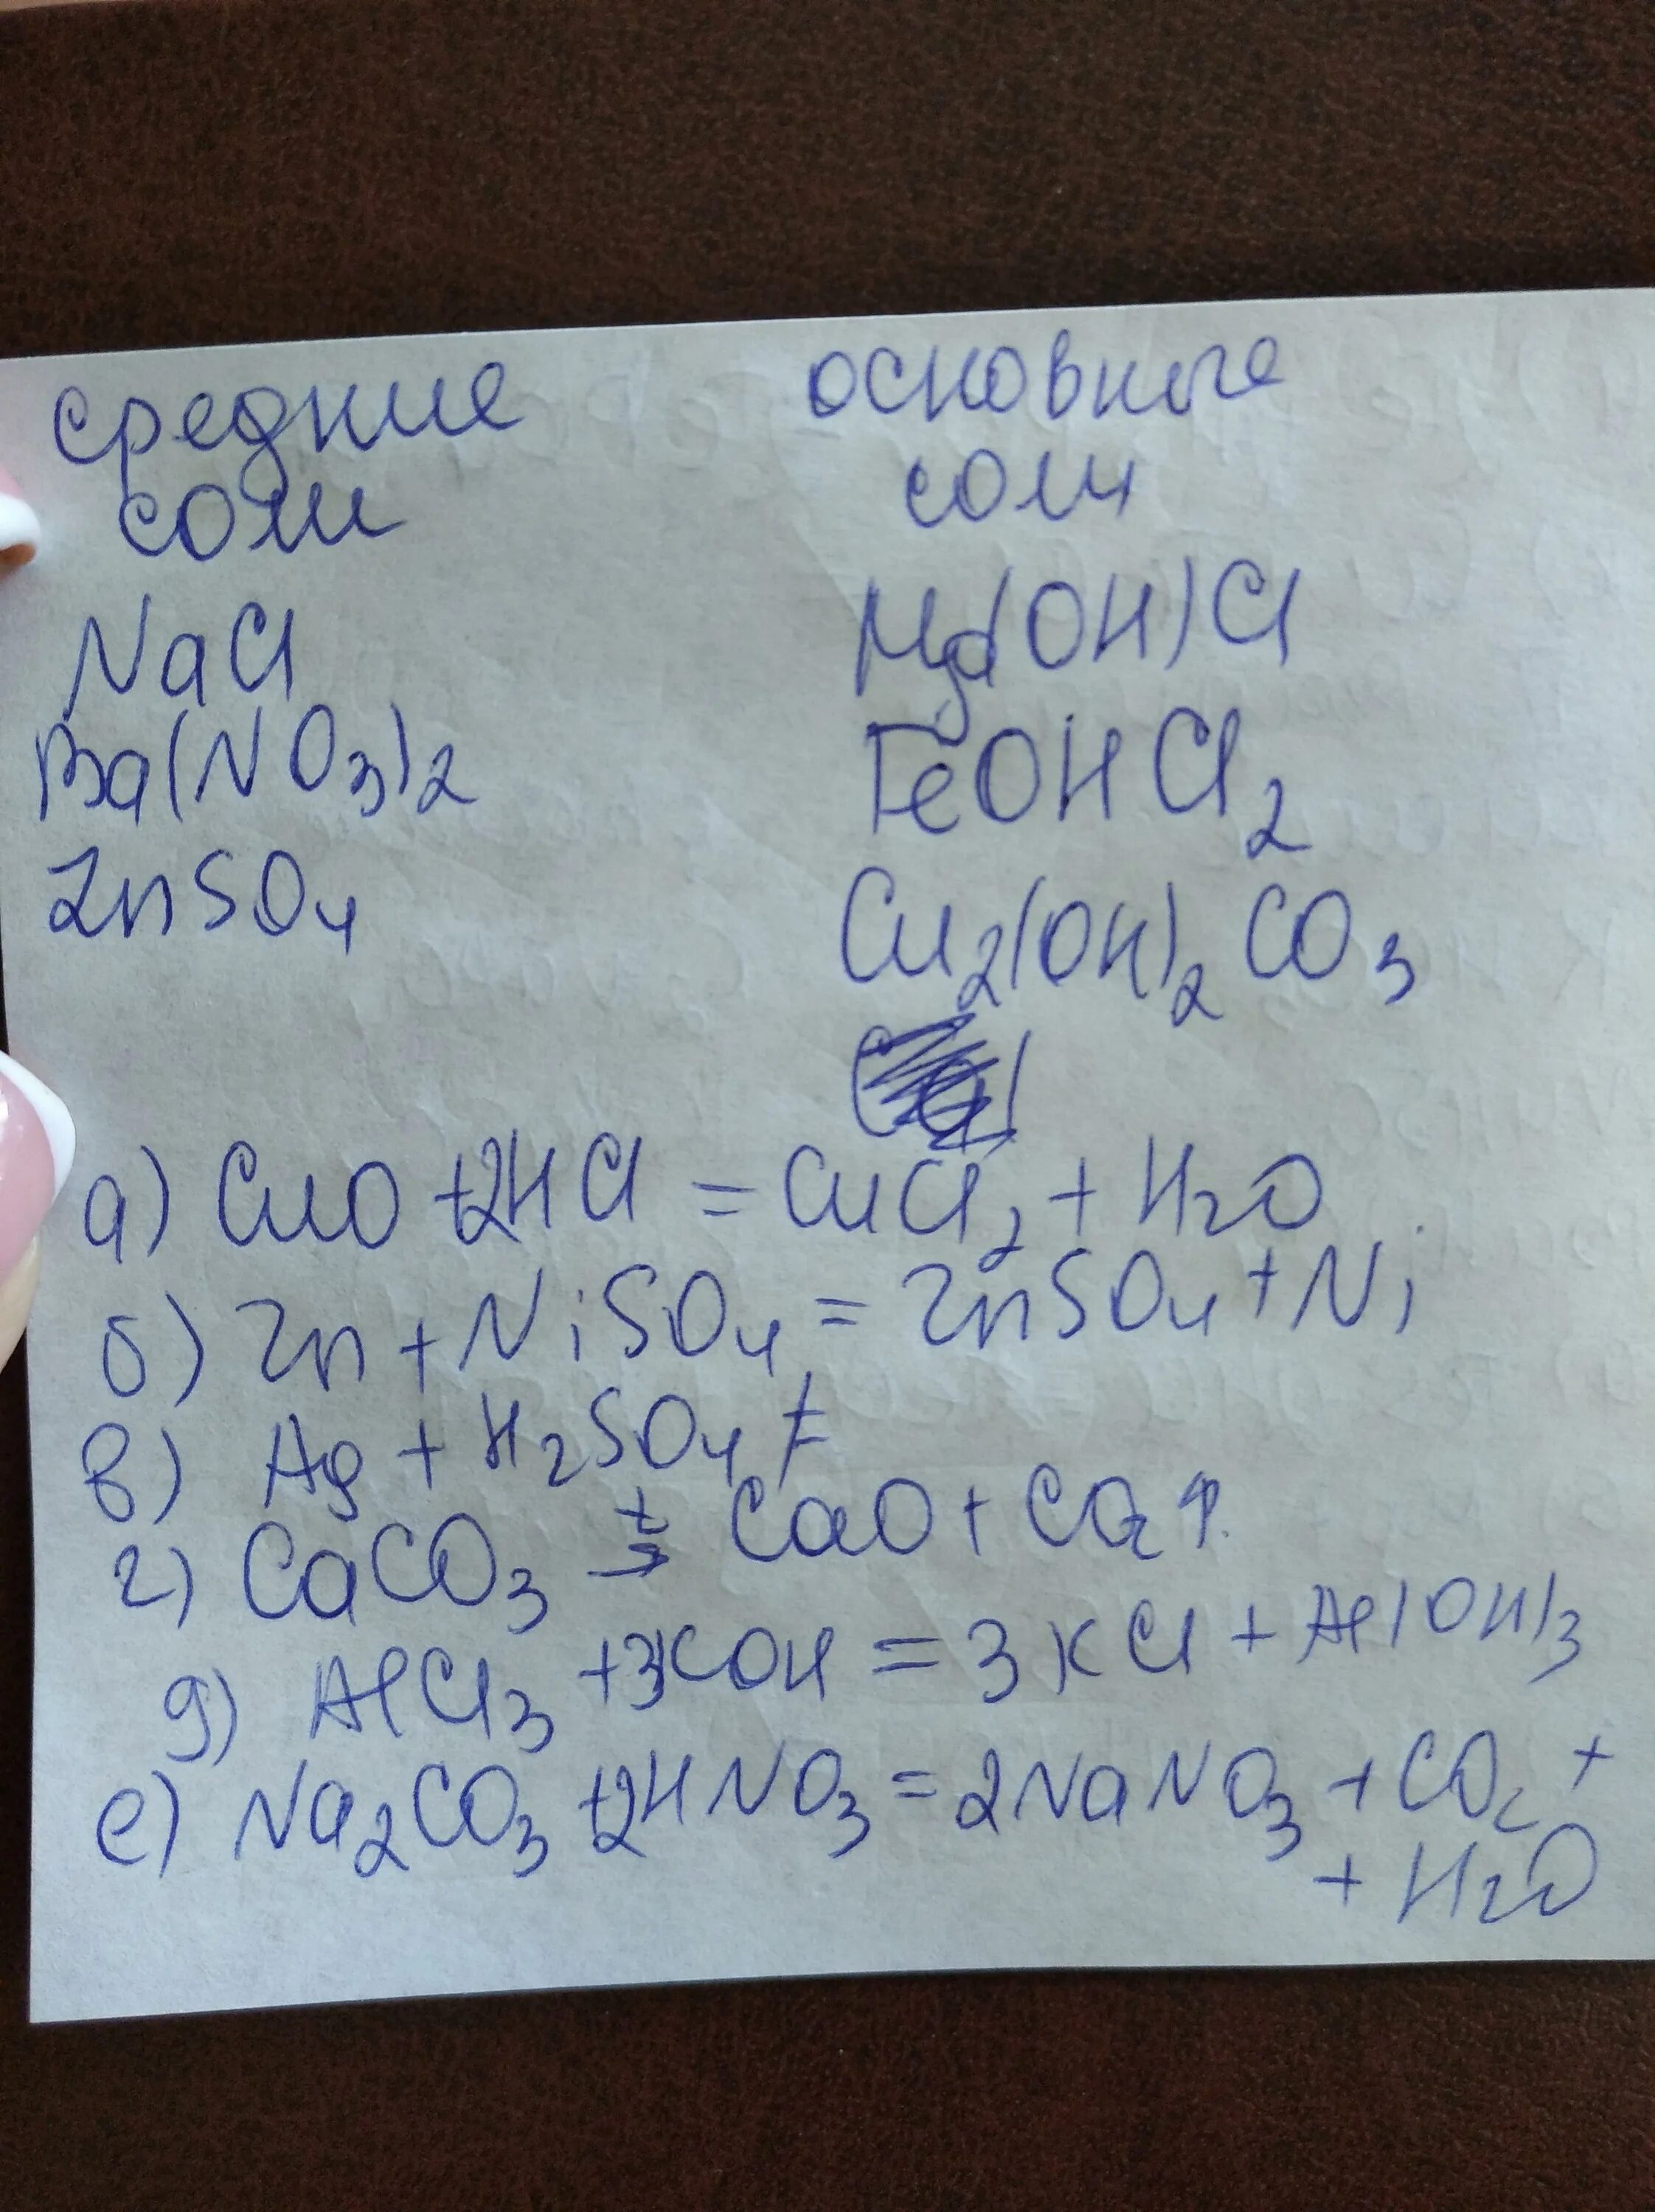 средние
соли
NaCl
Ba(NO3)2
ZnSO4
основные
соли
Mg(OH)Cl
FeOHCl2
Cu2(OH)2CO3
а) CuO+2HCl = CuCl2 + H2O
б) Zn + NiSO4 = ZnSO4 + Ni
в) Ag + H2SO4 ≠
г) CaCO3 t→ CaO + CO2↑
д) AlCl3 +3KOH = 3KCl + Al(OH)3
е) Na2CO3 +2HNO3 = 2NaNO3 + CO2 +
+ H2O